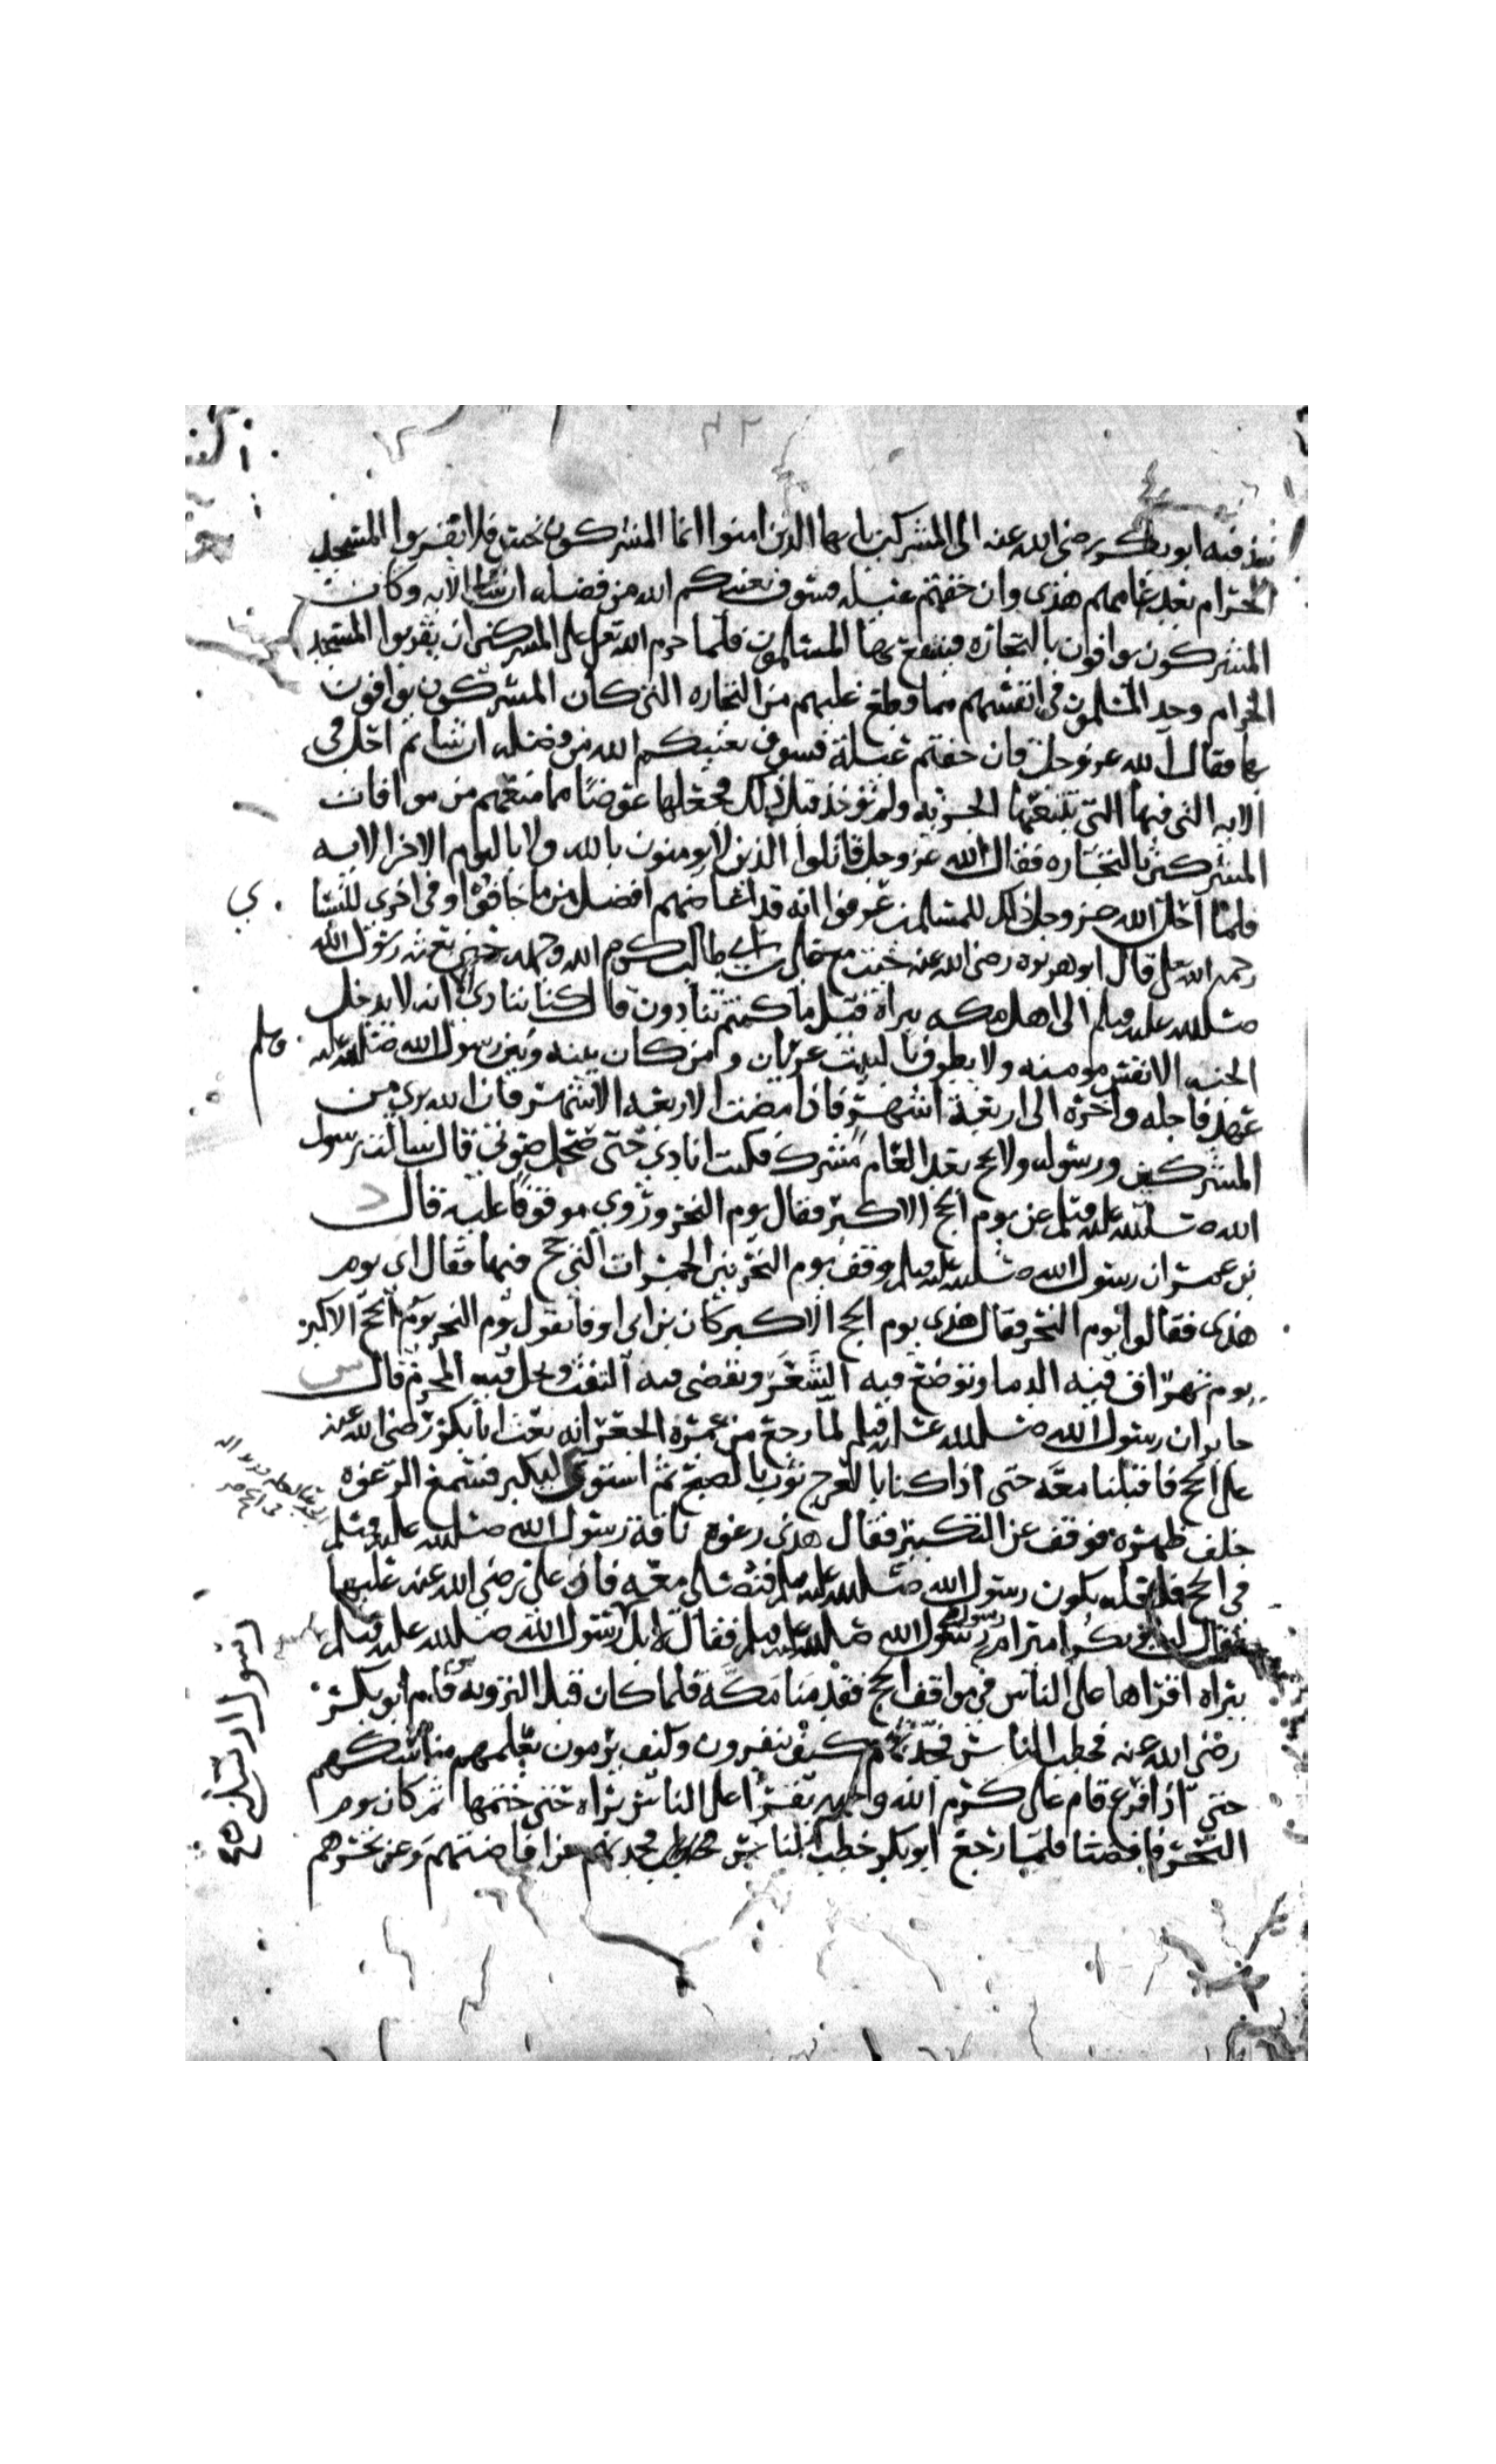 نبذ فيه ابو بكر رضى الله عنه الى المشركين يا يها الذين امنوا انما المشركون نجس فلا يقربوا المسجد
الحرام بعد عامهم هذى وان خفتم عيله فسوف يغنيكم الله من فضله ان شا الايه وكان
المشركون يوافون بالتجاره فينتفع بها المسلمون فلما حرم الله تعلى على المشركين ان يقربوا المسجد
الحرام وجد المسلمون فى انفسهم مما قطع عليهم من التجاره التى كان المشركون يوافون
بها فقال الله عز وجل فان خفتم عيلة فسوف يغنيكم الله من فضله ان شا ثم احل فى
الايه التى فيها التى تتبعها الجزيه ولم توخذ قبل ذلك فجعلها عوضا مما منعهم من موافات
المشركين بالتجاره فقال الله عز وجل قاتلوا الذين لا يومنون بالله ولا باليوم الاخر الايه
فلما احل الله عز وجل ذلك للمسلمين عرفوا انه قد اعاضهم افضل من ما خافوا وفى اخرى للنسا ي
رحمه الله تعلى قال ابو هريره رضى الله عنه جيت مع على بن ابى طالب كرم الله وجهه حين بعثه رسول الله
صلى الله عليه وسلم الى اهل مكه ببراه قيل ما كنتم تنادون قال كنا ننادى انه لا يدخل
الجنه الا نفس مومنه ولا يطوف بالبيت عريان ومن كان بينه وبين رسول الله صلى الله عليه وسلم
عهد فاجله واخره الى اربعة اشهر فاذا مضت الاربعه الاشهر فان الله برى من
المشركين ورسوله ولا يحج بعد العام مشرك فكنت انادى حتى صحل صوتى قال سالت رسول
الله صلى الله عليه وسلم عن يوم الحج الاكبر فقال يوم النحر وروى موقوفا عليه قال د
بن عمر ان رسول الله صلى الله عليه وسلم وقف يوم النحر بين الجمرات التى حج فيها فقال اى يوم
هذى فقالوا يوم النحر فقال هذى يوم الحج الاكبر كان بن ابى اوفا يقول يوم النحر يوم الحج الاكبر
يوم تهراق فيه الدما ويوضع فيه الشعر ويقضى فيه التفث ويحل فيه المحرم قال س
جابر ان رسول الله صلى الله عليه وسلم لما رجع من عمرة الجعرانه بعث ابا بكر رضى الله عنه
على الحج فاقبلنا معه حتى اذا كنا بالعرج ثوب بالصبح ثم استوى ليكبر فسمع الرغوه
خلف ظهره فوقف عن التكبير فقال هذى رغوة ناقة رسول الله صلى الله عليه وسلم
فى الحج فلعله يكون رسول الله صلى الله عليه وسلم فنصلى معه فاذا على رضى الله عنه عليها
فقال له ابو بكر امير ام رسول رسول الله صلى الله عليه وسلم فقال لا بل رسول الله صلى الله عليه وسلم
ببراه اقراها على الناس فى مواقف الحج فقدمنا مكة فلما كان قبل الترويه قام ابو بكر
رضى الله عنه فخطب الناس فحدثهم كيف ينفرون وكيف يرمون يعلمهم مناسكهم
حتى اذا فرغ قام على كرم الله وجهه يقرا على الناس براه حتى ختمها ثم كان يوم
النحر فافضنا فلما رجع ابو بكر خطب الناس فحدثهم عن افاضتهم وعن نحرهم
رسول ارسلنى